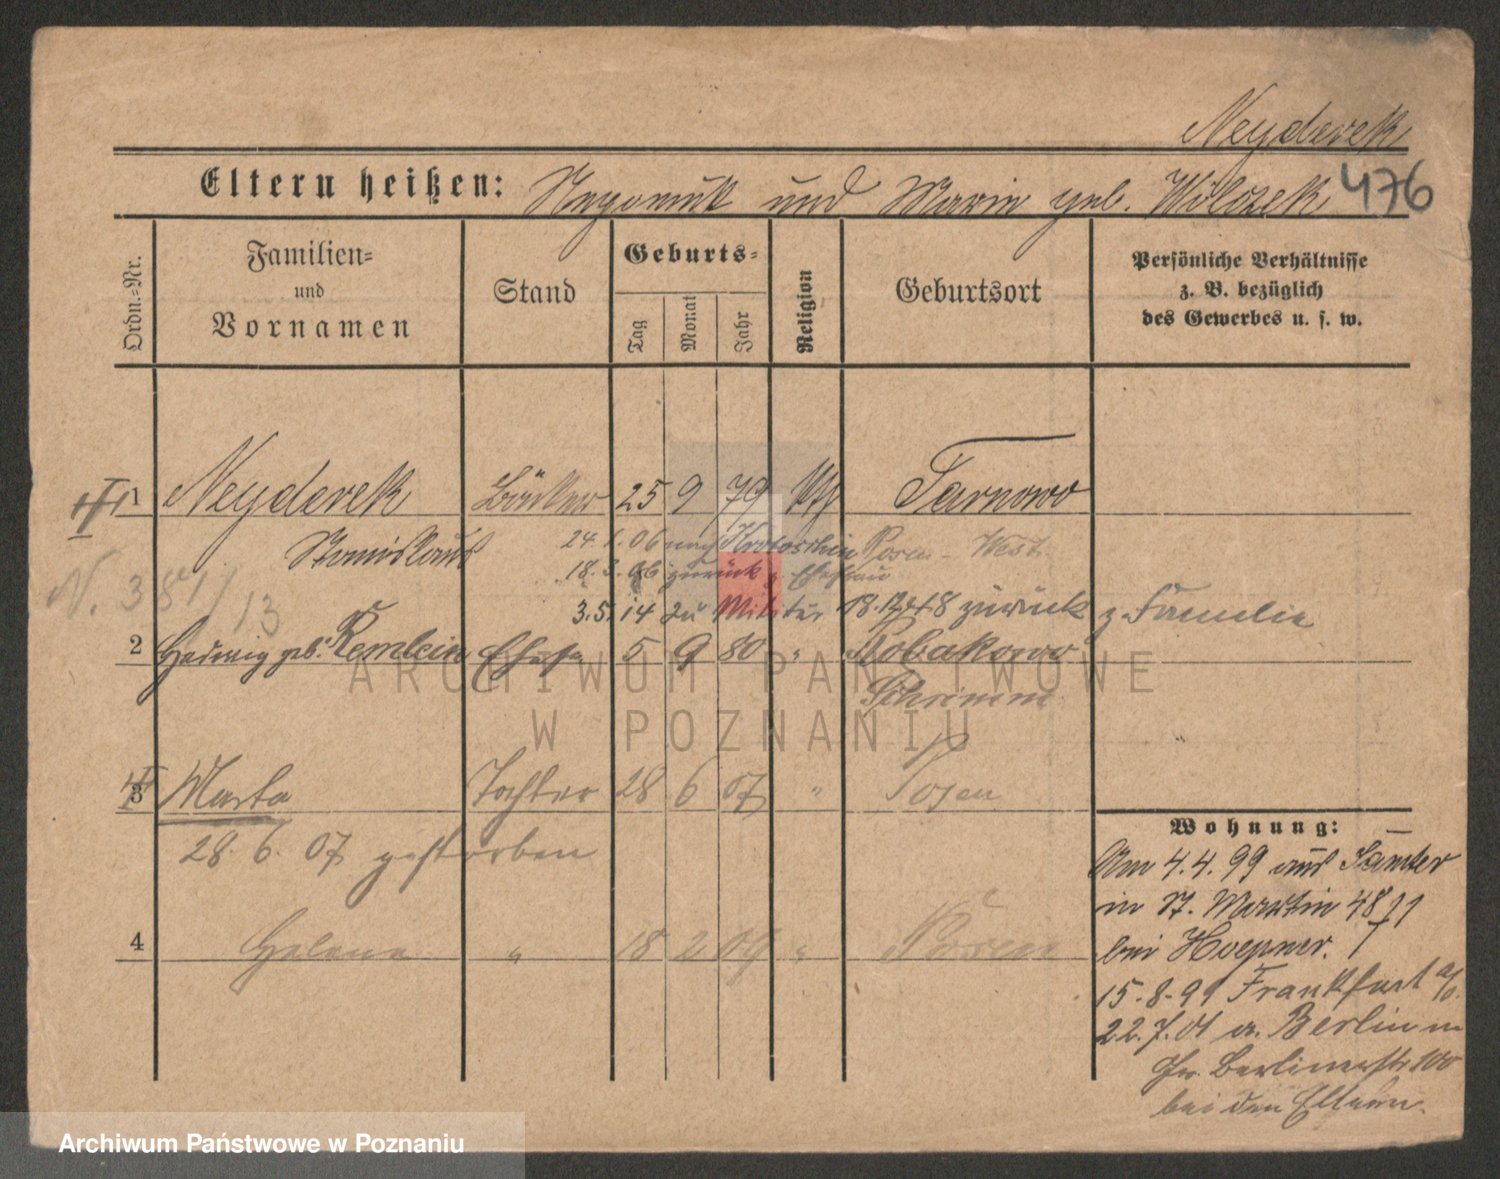 Neyderek
Eltern heißen: Nepomuk und Maria geb. Wilczek 476
Ordn.-Nr.
Familien-
und
Vornamen
Stand
Geburts-
Tag
Monat
Jahr
Religion
Geburtsort
Persönliche Verhältnisse
z. B. bezüglich
des Gewerbes u. s. w.
1 Neyderek Bäcker 25 9 79 kth Tarnowo
Stanislaus 24. 1. 06 nach Krotoschin Posen - West.
18. 3. 06 zurück z. Ehefrau
N. 3841/13
3.5.14 zu Militär 18.12.18 zurück z. Familie
2 Hedwig geb. Remlein Ehefr 5 9 80 " Robakowo
Schrimm
3 Marta Tochter 28 6 07 " Posen
28. 6. 07 gestorben
4 Helene " 18 2 09 " Posen
Wohnung:
Am 4.4.99 aus Samter
in St. Martin 48
bei Hoepner.
15.8.99 Frankfurt a/O.
22.7.01 a. Berlin n
Gr. Berlinerstr 100
bei den Eltern.
ARCHIWUM PAŃSTWOWE
W POZNANIU
Archiwum Państwowe w Poznaniu